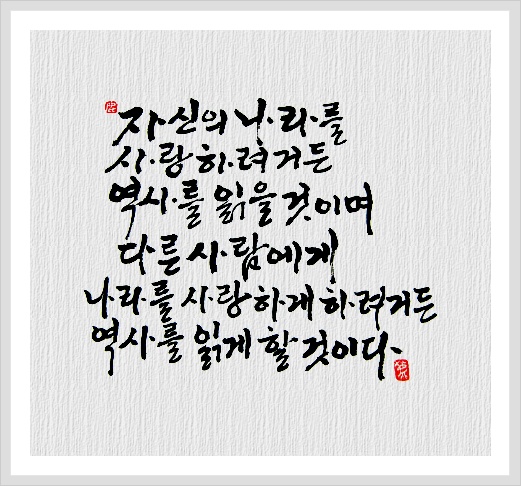 자신의 나라를
사랑하려거든
역사를 읽을 것이며
다른 사람에게
나라를 사랑하게 하려거든
역사를 읽게 할 것이다.